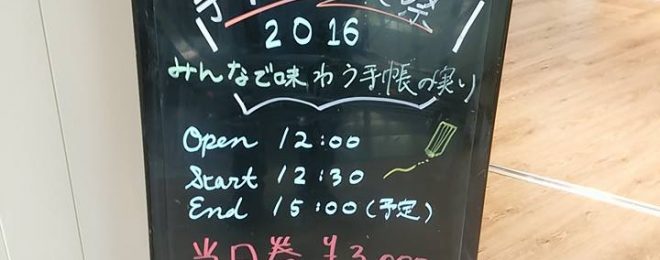 2016
みんなで味わう手帳の実り
Open 12:00
Start 12:30
End 15:00(予定)
当日券 ¥3,000